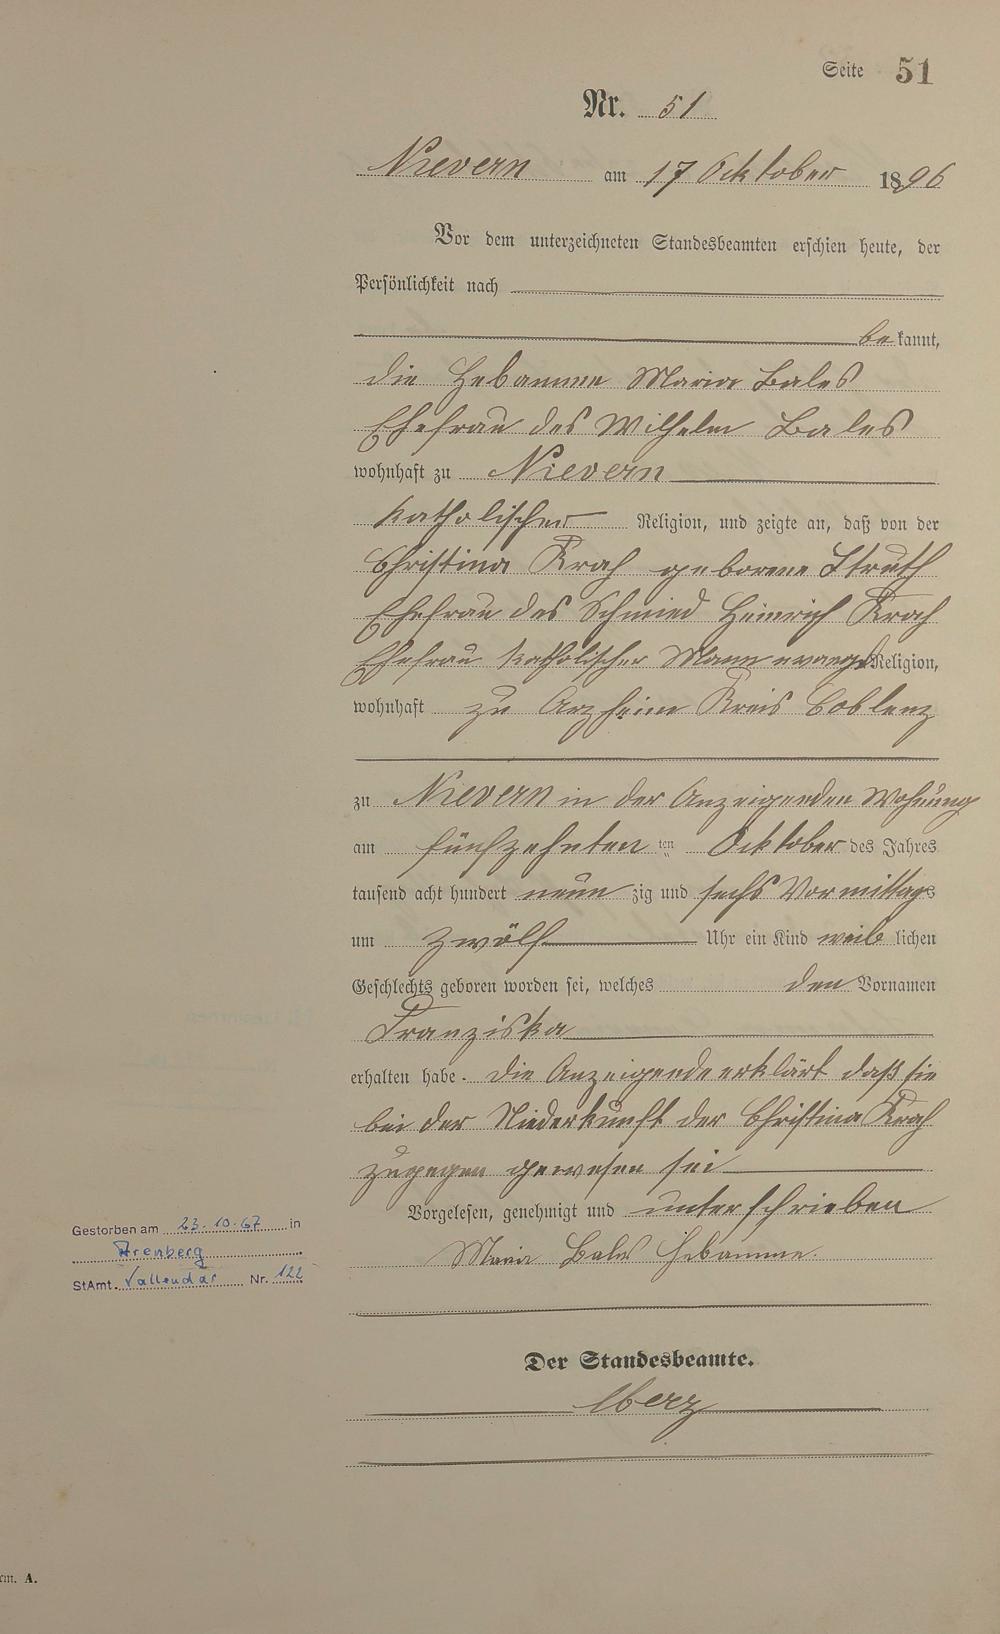 Seite 51
Nr. 51
Nievern am 17 Oktober 1896
Vor dem unterzeichneten Standesbeamten erschien heute, der
Persönlichkeit nach
be kannt,
die Hebamme Maria Bales
Ehefrau des Wilhelm Bales
wohnhaft zu Nievern
katholischer Religion, und zeigte an, daß von der
Christina Krah geborene Struth
Ehefrau des Schmied Heinrich Krah
Ehefrau katholischer Mann evangl Religion,
wohnhaft zu Arzheim Kreis Coblenz
zu Nievern in der Anzeigenden Wohnung
am fünfzehnten ten Oktober des Jahres
tausend acht hundert neun zig und sechs Vormittags
um zwölf Uhr ein Kind weib lichen
Geschlechts geboren worden sei, welches den Vornamen
Franziska
erhalten habe. Die Anzeigende erklärt daß sie
bei der Niederkunft der Christina Krah
zugegen gewesen sei
Vorgelesen, genehmigt und unterschrieben
Maria Bales Hebamme.
Der Standesbeamte.
Gestorben am 23.10.67 in
Arenberg
StAmt. Vallendar Nr. 122
rm. A.